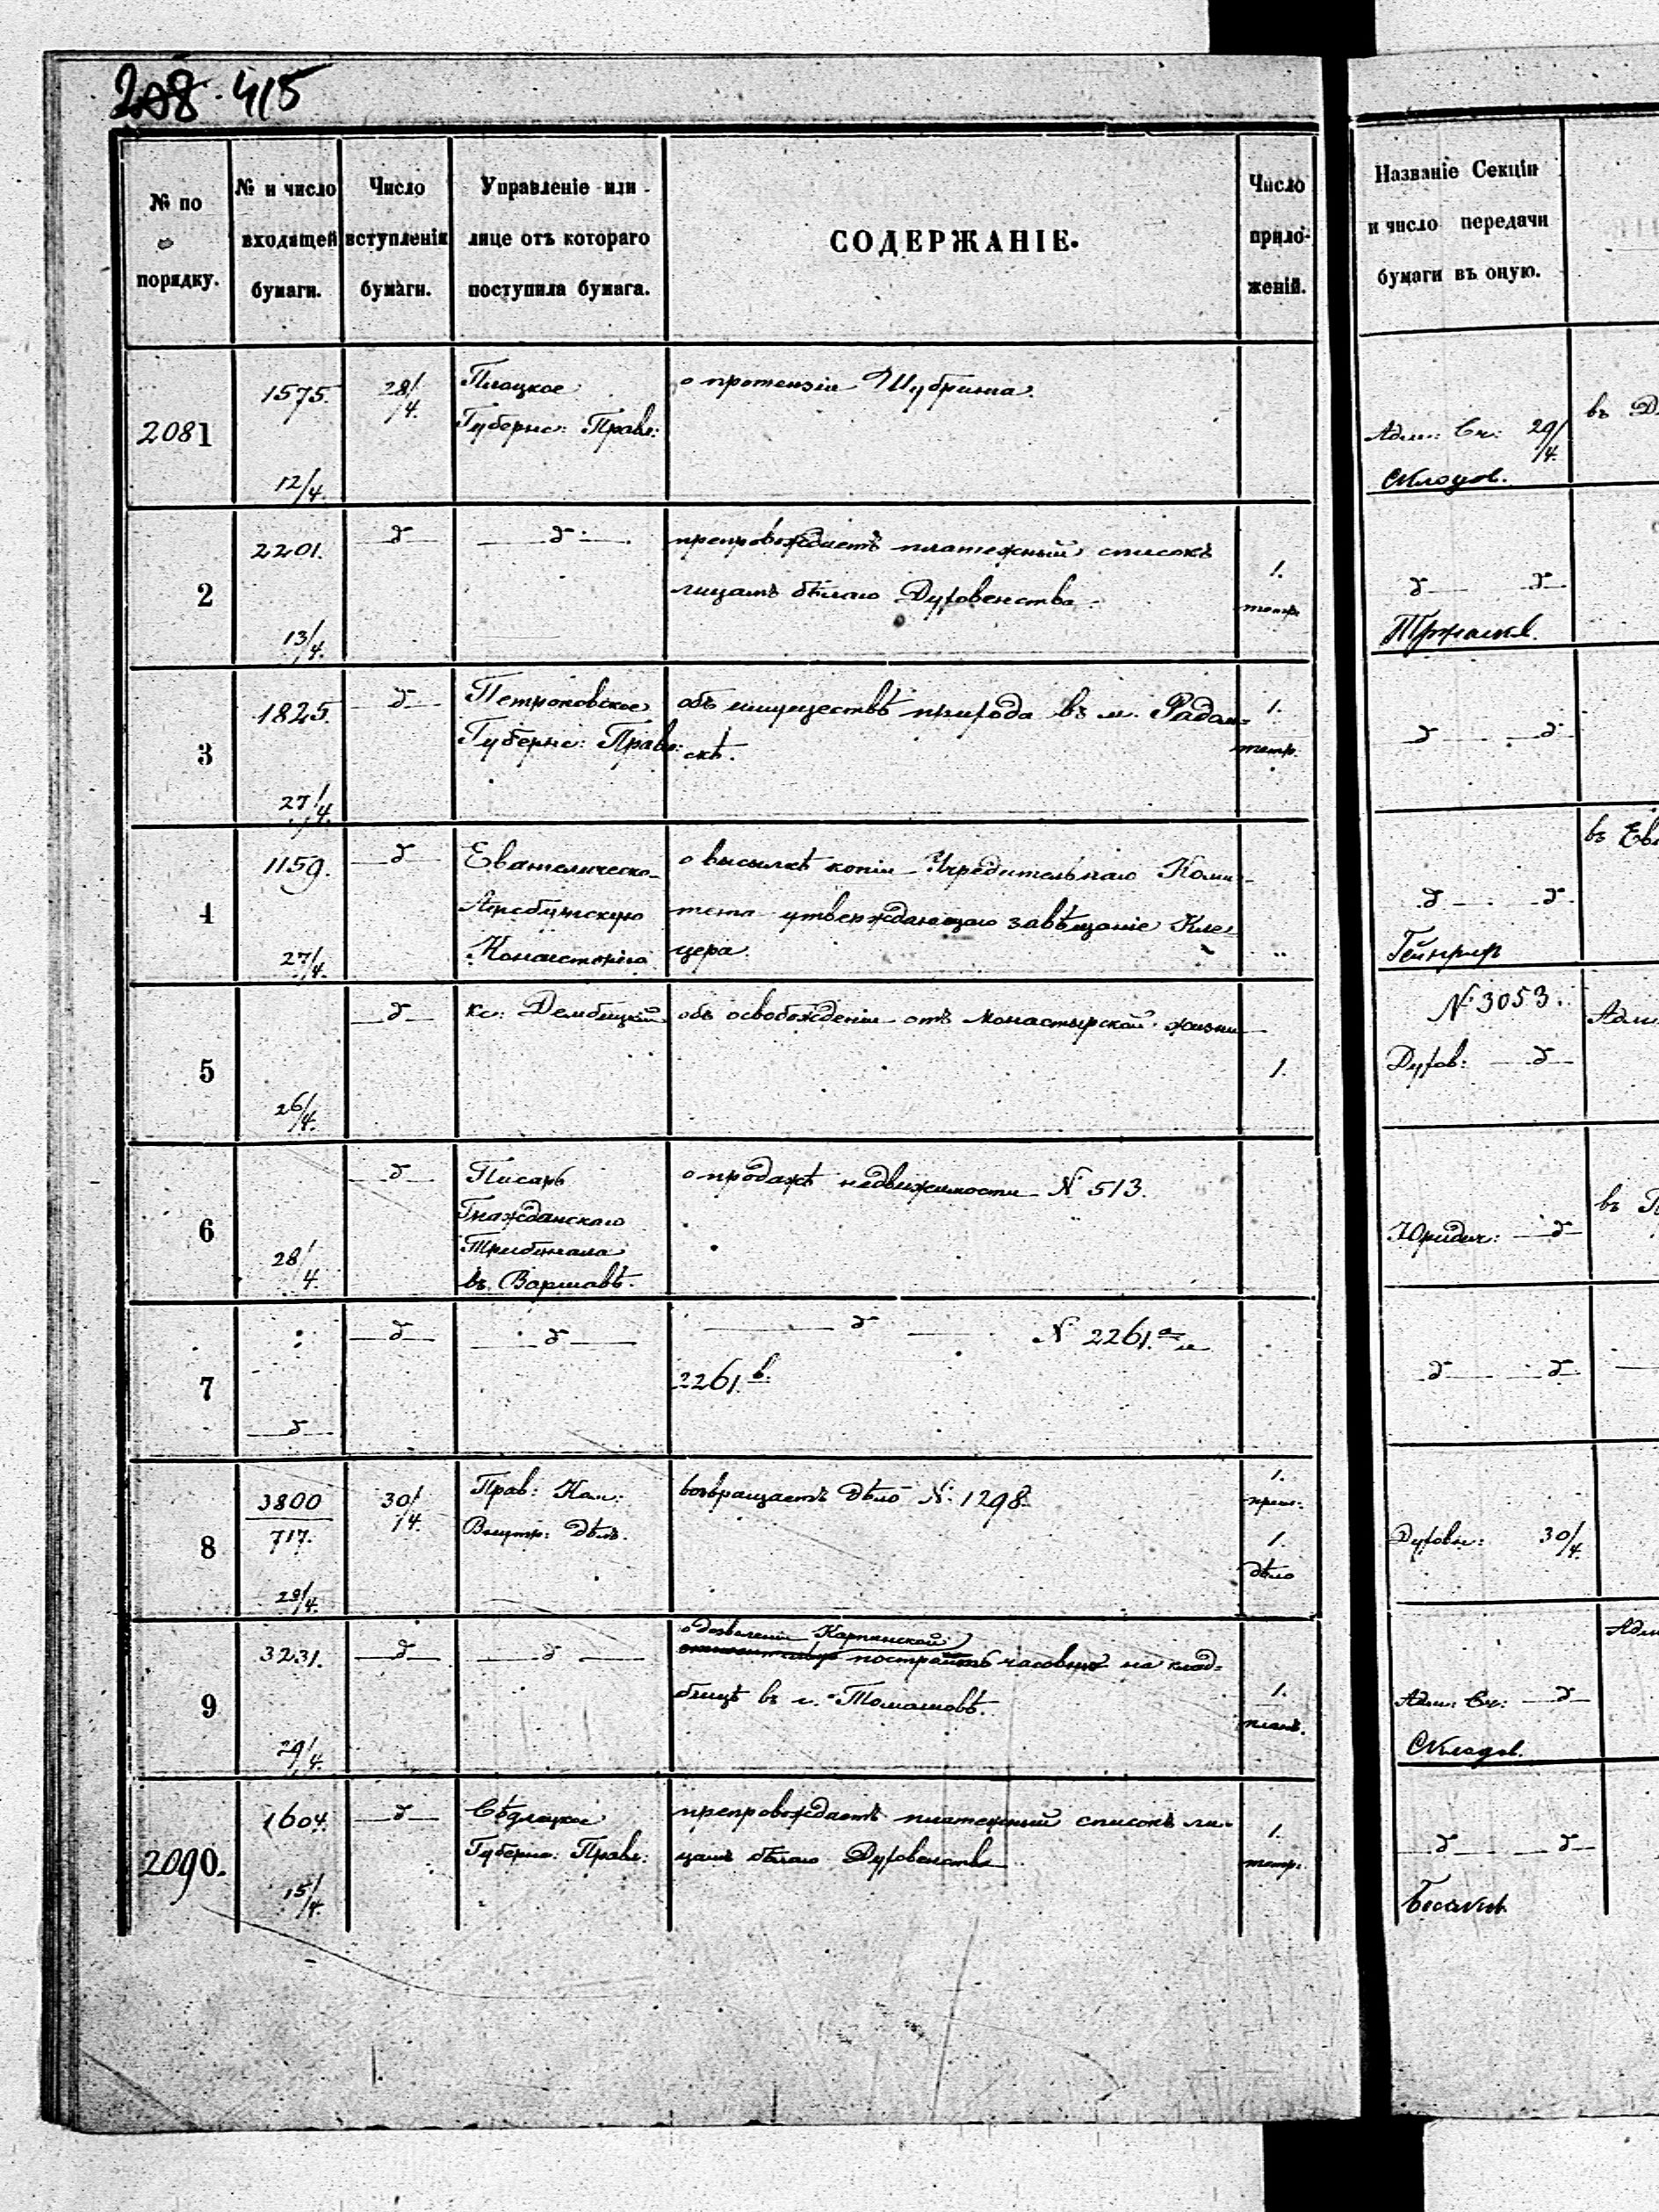 208. 415
№ по порядку.
№ и число входящей бумаги.
Число вступленія бумаги.
Управленіе или лице отъ котораго поступила бумага.
СОДЕРЖАНІЕ.
Число приложеній.
Названіе Секціи и число передачи бумаги въ оную.
2081
1575.
12/4.
28/4.
Плоцкое
Губернс: Правл:
о претензіи Шубрина.
Адм: Сч: 29/4.
въ Д
2
2201.
13/4.
д
д
препровождаетъ платежный списокъ
лицамъ бѣлаго Духовенства.
1.
тетр.
д д
3
1825.
27/4.
д
Петроковское
Губернс: Правл:
объ имуществѣ прихода въ м. Радом=
скѣ.
1.
тетр.
д д
4
1159.
27/4.
д
Евангелическо-
Аугсбургскую
Консисторію
о высылкѣ копіи Учредительнаго Коми-
тета утверждающаго завѣщаніе Кле=
цера.
д д
Гейнрих
въ Ев
5
26/4.
д
кс: Дембицкій
объ освобожденіи отъ монастырской жизни
1.
№ 3053.
Духов: д
Адм
6
28/4.
д
Писарь
Гражданскаго
Трибунала
въ Варшавѣ.
о продажѣ недвижимости № 513.
Юридич: д
7
д
д
д
д № 2261.а и
2261.в.
д д
8
3800
717.
29/4.
30/4.
Прав: Ком:
Внутр: Дѣлъ.
возвращаетъ дѣло № 1298.
1.
1.
дѣло
Духовн: 30/4.
9
3231.
29/4.
д
д
о дозволеніи Карпинской
построить часовню на клад=
бищѣ въ г. Томашовѣ.
1.
планъ.
Адм: Сч: д
Складов.
Адм
2090.
1604.
15/4.
д
Сѣдлецкое
Губернс: Правл:
препровождаетъ платежный списокъ ли-
цамъ бѣлаго Духовенства
1.
тетр.
д д